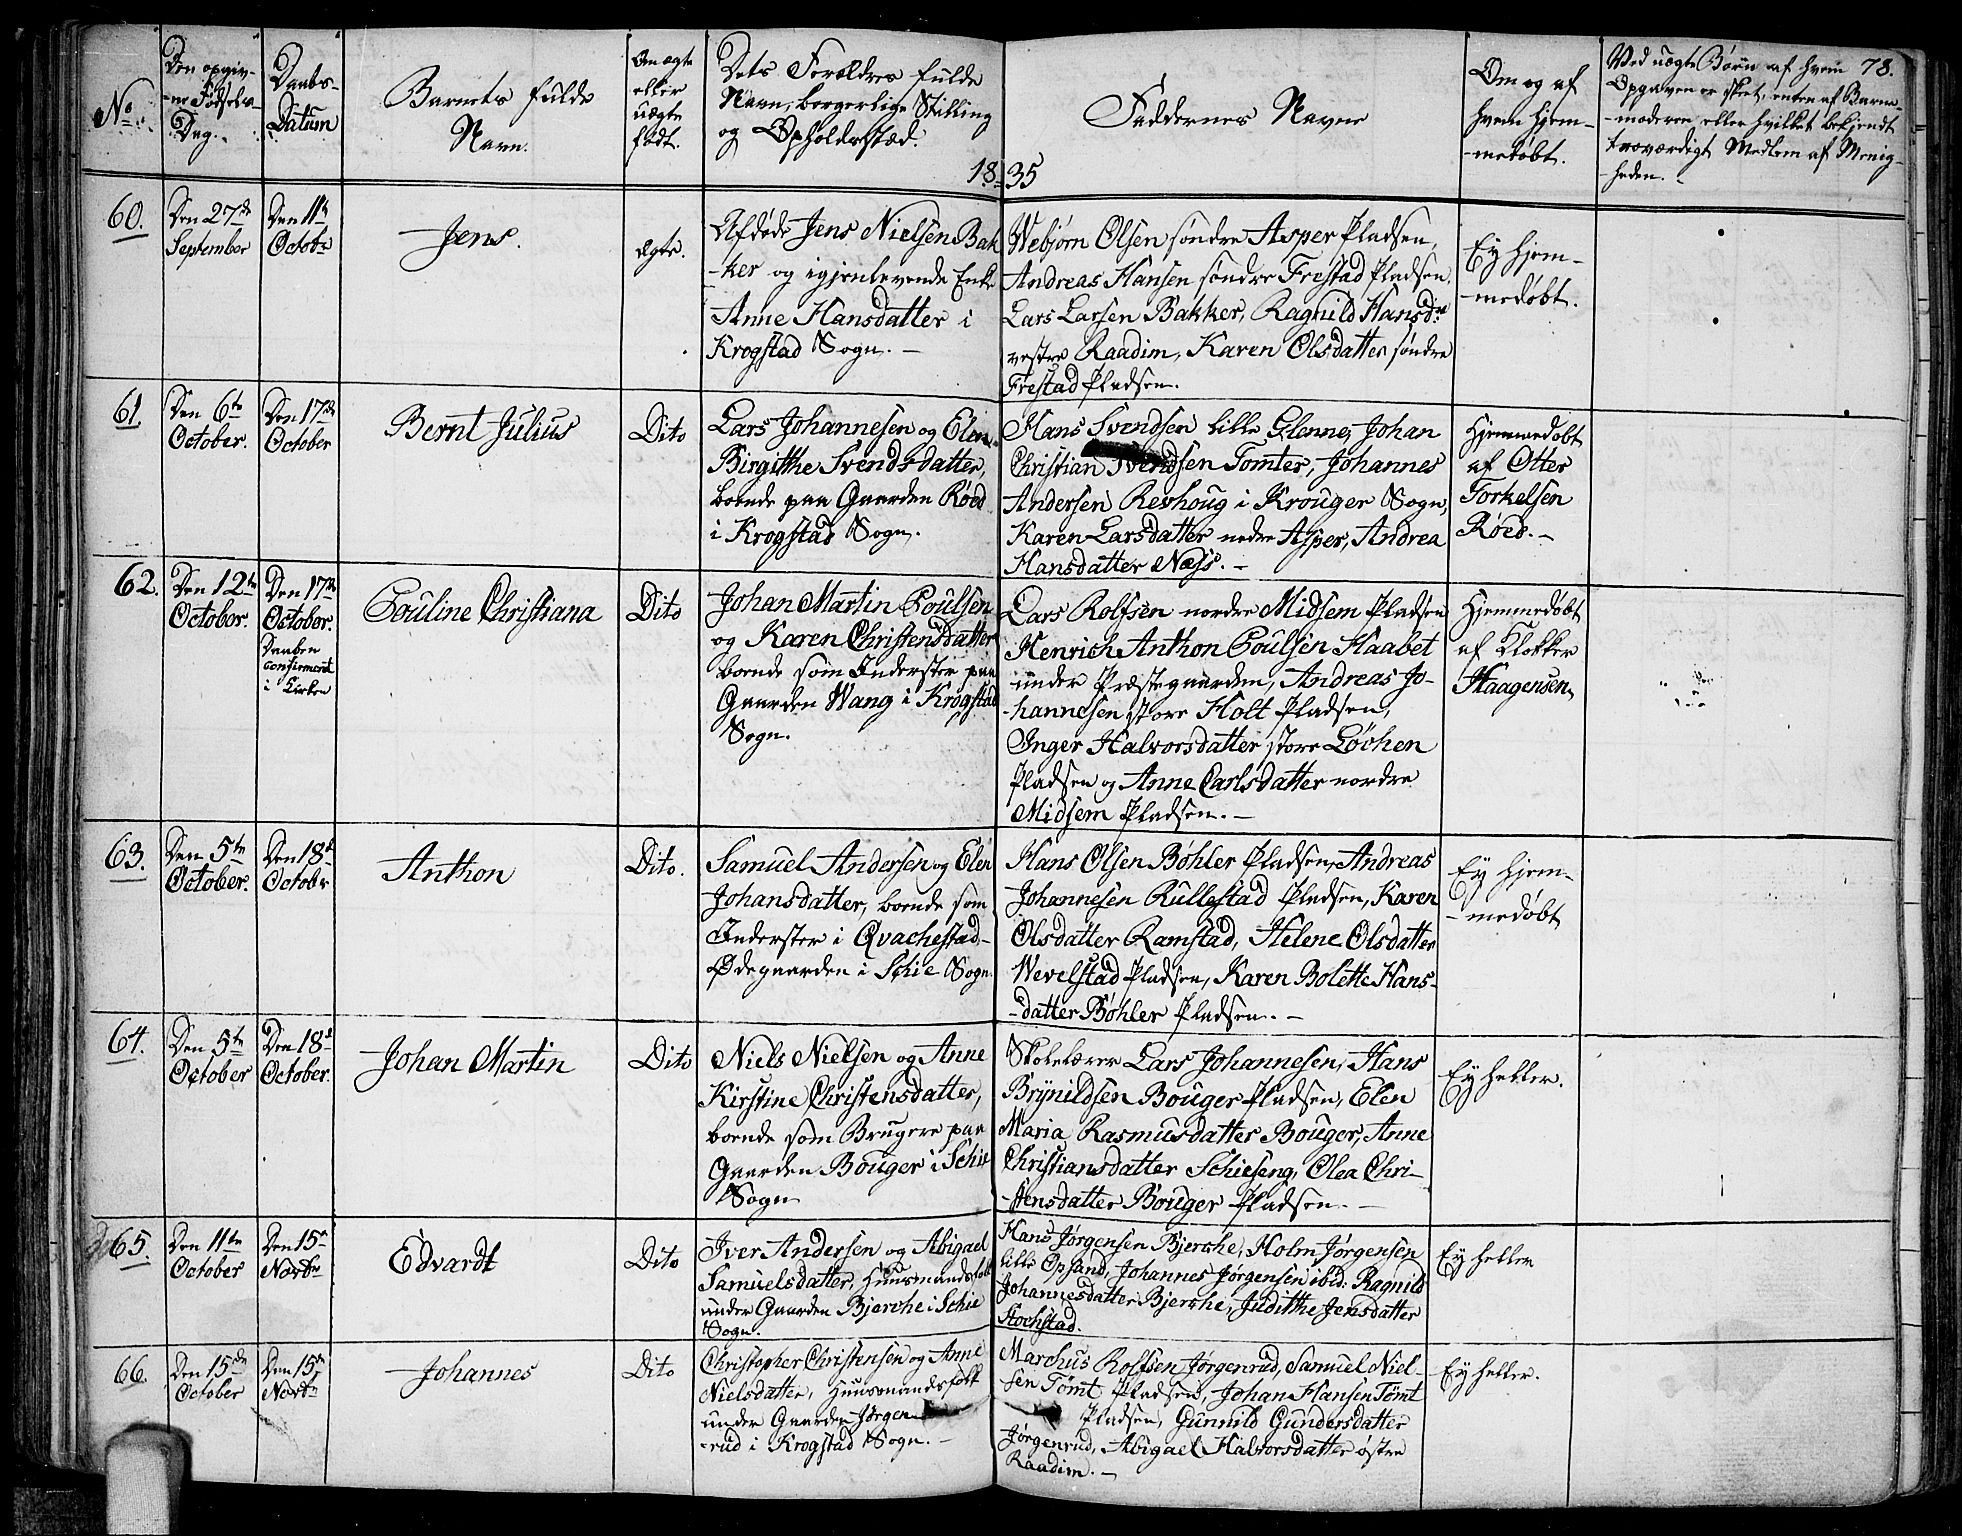 78.
No.
Den opgiv-
-ne Fødsels-
Dag.
Daabs-
Datum
Barnets fulde
Navn.
Om ægte
eller
uægte
født.
Dets Forældres fulde
Navn, borgerlige Stilling
og Opholdssted.
Faddernes Navne
Om og af
hvem hjem-
-medøbt.
Ved uægte Børn af hvem
Opgaven er skeet, enten af Barne-
-moderen eller hvilket bekjendt
troværdigt Medlem af Menig-
-heden.
1835
60.
Den 27de
September
Den 11te
Octobr
Jens.
ægte.
Afdøde Jens Nielsen Bak
-ker og igjenlevende Enke
Anne Hansdatter i
Krogstad Sogn.
Webjørn Olsen søndre Asper Pladsen,
Andreas Hansen søndre Frestad Pladsen,
Lars Larsen Bakker, Ragnild Hansdr
vestre Raadim, Karen Olsdatter søndre
Frestad Pladsen.
Ey hjem-
-medøbt.
61.
Den 6te
October.
Den 17de
October
Bernt Julius
Dito
Lars Johannesen og Elen
Birgitthe Svendsdatter,
boende paa Gaarden Røed
i Krogstad Sogn.
Hans Svendsen lille Glenne, Johan
Christian Svendsen Tomter, Johannes
Andersen Revhoug i Krouger Sogn,
Karen Larsdatter nedre Asper, Andrea
Hansdatter Næss.
Hjemmedøbt
af Otter
Torkelsen
Røed.
62.
Den 12te
October.
Den 17de
October.
Daaben
confirmeret
i Kirken
Pouline Christiana
Dito
Johan Martin Poulsen
og Karen Christensdatter
boende som Inderster paa
Gaarden Wang i Krogstad
Sogn.
Lars Rolfsen nordre Midsem Pladsen
Henrich Anthon Poulsen Haabet
under Præstegaarden, Andreas Jo-
-hannesen store Holt Pladsen,
Inger Halvorsdatter store Løchen
Pladsen og Anne Carlsdatter nordre
Midsem Pladsen.
Hjemmedøbt
af Klokker
Haagensen,
63.
Den 5te
October.
Den 18de
Octobr
Anthon
Dito.
Samuel Andersen og Elen
Johansdatter, boende som
Inderster i Qvachestad-
Ødegaarden i Schie Sogn.
Hans Olsen Bøhler Pladsen, Andreas
Johannesen Rullestad Pladsen, Karen
Olsdatter Ramstad, Helene Olsdatter
Wevelstad Pladsen, Karen Bolette Hans-
-datter Bøhler Pladsen.
Ey hjem-
-medøbt
64.
Den 5te
October
Den 18de
October.
Johan Martin
Dito
Niels Nielsen og Anne
Kirstine Christensdatter,
boende som Brugere paa
Gaarden Bouger i Schie
Sogn
Skolelærer Lars Johannesen, Hans
Brynildsen Bouger Pladsen, Elen
Maria Rasmusdatter Bouger, Anne
Christiansdatter Schieseng, Olea Chri-
-stensdatter Bouger Pladsen.
Ey heller.
65.
Den 11te
October
Den 15de
Novbr
Edvardt
Dito
Iver Andersen og Abigael
Samuelsdatter, Huusmandsfolk
under Gaarden Bjerche i Schie
Sogn.
Hans Jørgensen Bjerche, Holm Jørgensen
lille Opsand, Johannes Jørgensen ibid: Ragnild
Johannesdatter Bjerche, Judithe Jensdatter
Stochstad.
Ey heller
66.
Den 15de
October
Den 15de
Novbr
Johannes
Dito
Christopher Christensen og Anne
Nielsdatter, Huusmandsfolk
under Gaarden Jørgen
-rud i Krogstad Sogn.
Marchus Rolfsen Jørgenrud, Samuel Niel-
sen Tømt Pladsen, Johan Hansen Tømt
Pladsen, Gunnild Gundersdatter
Jørgenrud, Abigael Halvorsdatter østre
Raadim.
Ey heller.